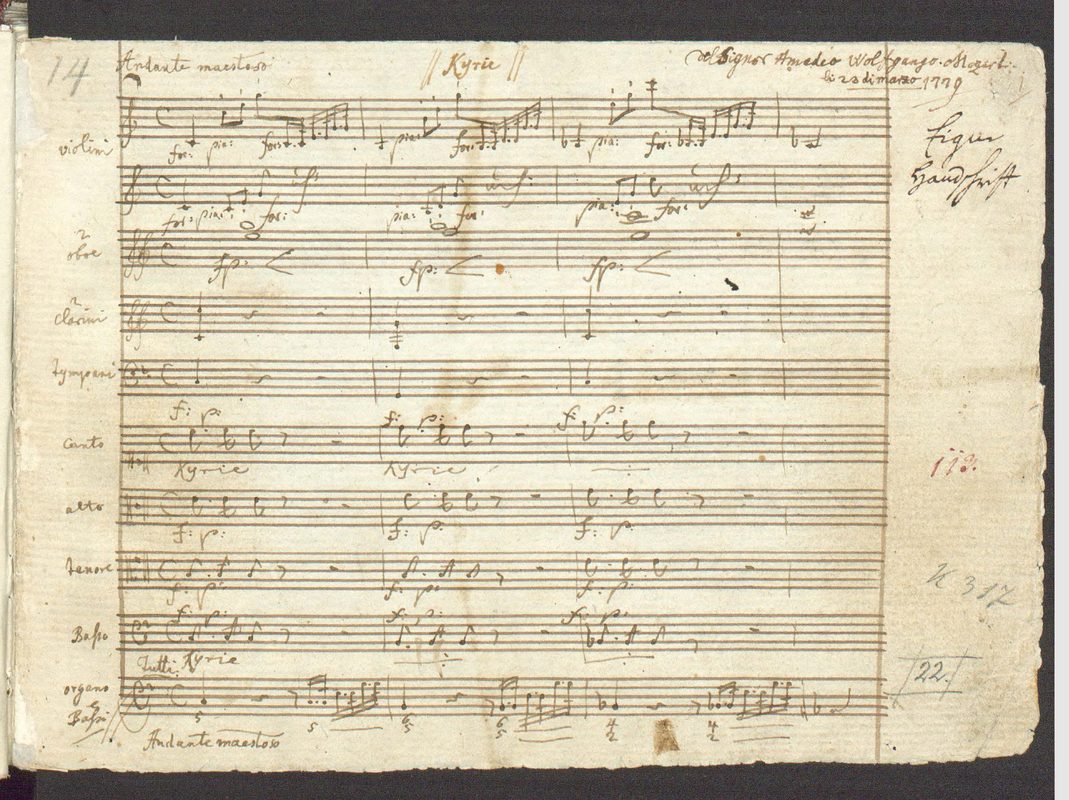 14 Andante maestoso // Kyrie // del Signor Amadeo Wolfgango Mozart
li 23 di marzo 1779
Eigne
Handschrift
violini
for: pia: for: pia: for: pia: for:
for: pia: for: pia: for: pia: for:
2 oboe
fp: fp: fp:
2 Clarini
tympani
f: p: f: p: f: p:
canto
Kyrie Kyrie
113.
alto
f: p: f: p: f: p:
tenore
f: p: f: p: f: p:
K 317
f: p: f: p: f: p:
Basso
Tutti: Kyrie
22.
organo
e
Bassi
5 5 6 5 6 5 4 2 4 2
Andante maestoso